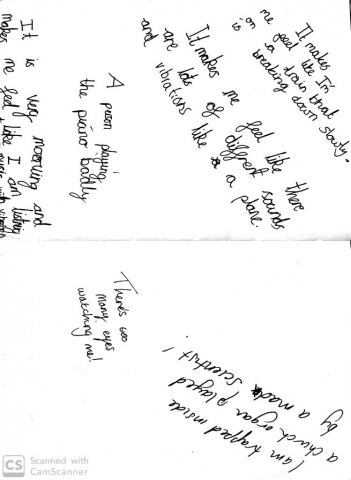 It makes
me feel like I'm
on a train that
is breaking down slowly.
It makes me feel like there
are lots of different sounds
and vibrations like a plane.
A person playing
the piano badly
It is very moving and
makes me feel like I am
music with
There's 600
many eyes
watching me!
I am trapped inside
a church organ played
by a mad scientist!
CS
Scanned with
CamScanner